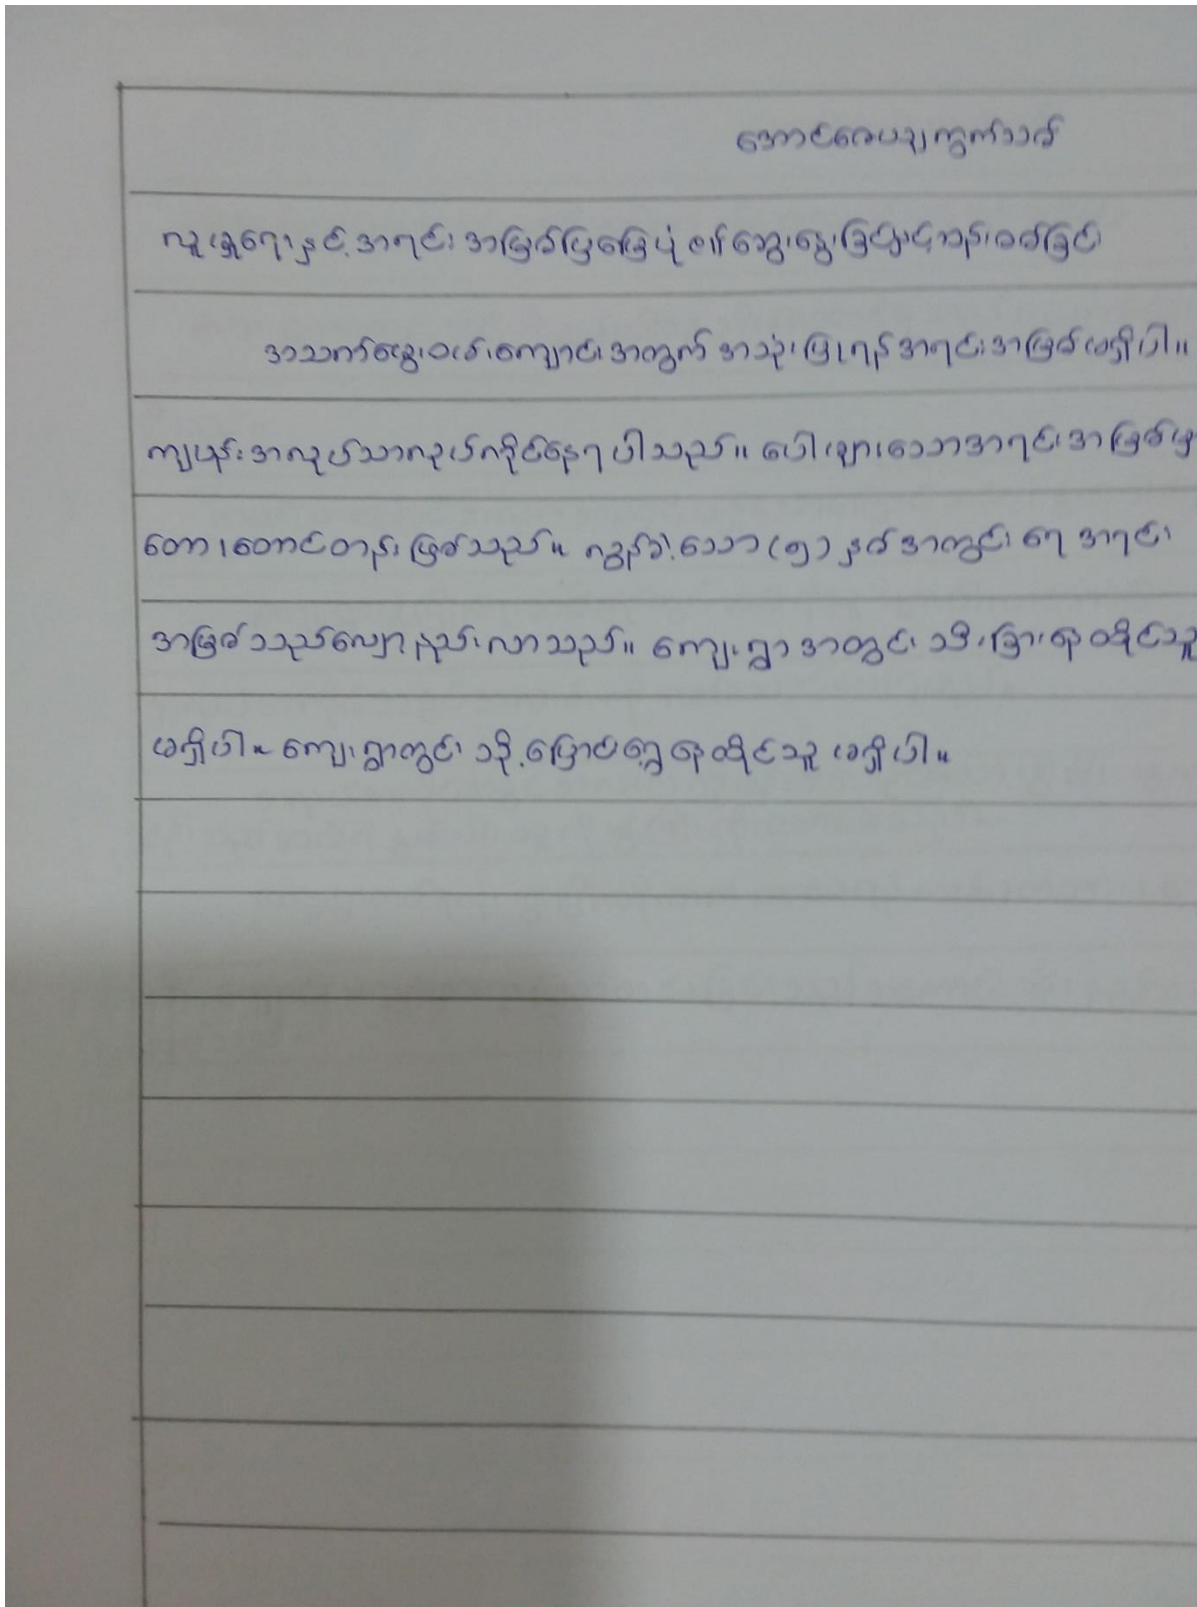 အောင်ဇေယျကွက်သစ်
လူမှုရေးနှင့် အရင်း အမြစ်ပြမြေပုံ ဇယ် ဆွေးနွေးခြင်းနှင့်ဆန်းစစ်ခြင်း
အသက်မွေးဝမ်းကျောင်းအတွက် အသုံးပြုရန်အရင်းအမြစ်မရှိပါ။
ကျပန်းအလုပ်သာလုပ်ကိုင်နေရပါသည်။ ပေါများသောအရင်းအမြစ်မှ
တော၊တောင်တန်းဖြစ်သည်။ လွန်ခဲ့သော (၅) နှစ်အတွင်း ရေ အရင်း
အမြစ်သည်လျော့နည်းလာသည်။ ကျေးရွာအတွင်း သီးခြားနေထိုင်သူ
မရှိပါ။ ကျေးရွာတွင်း သို့ ပြောင်းရွှေ့နေထိုင်သူ မရှိပါ။